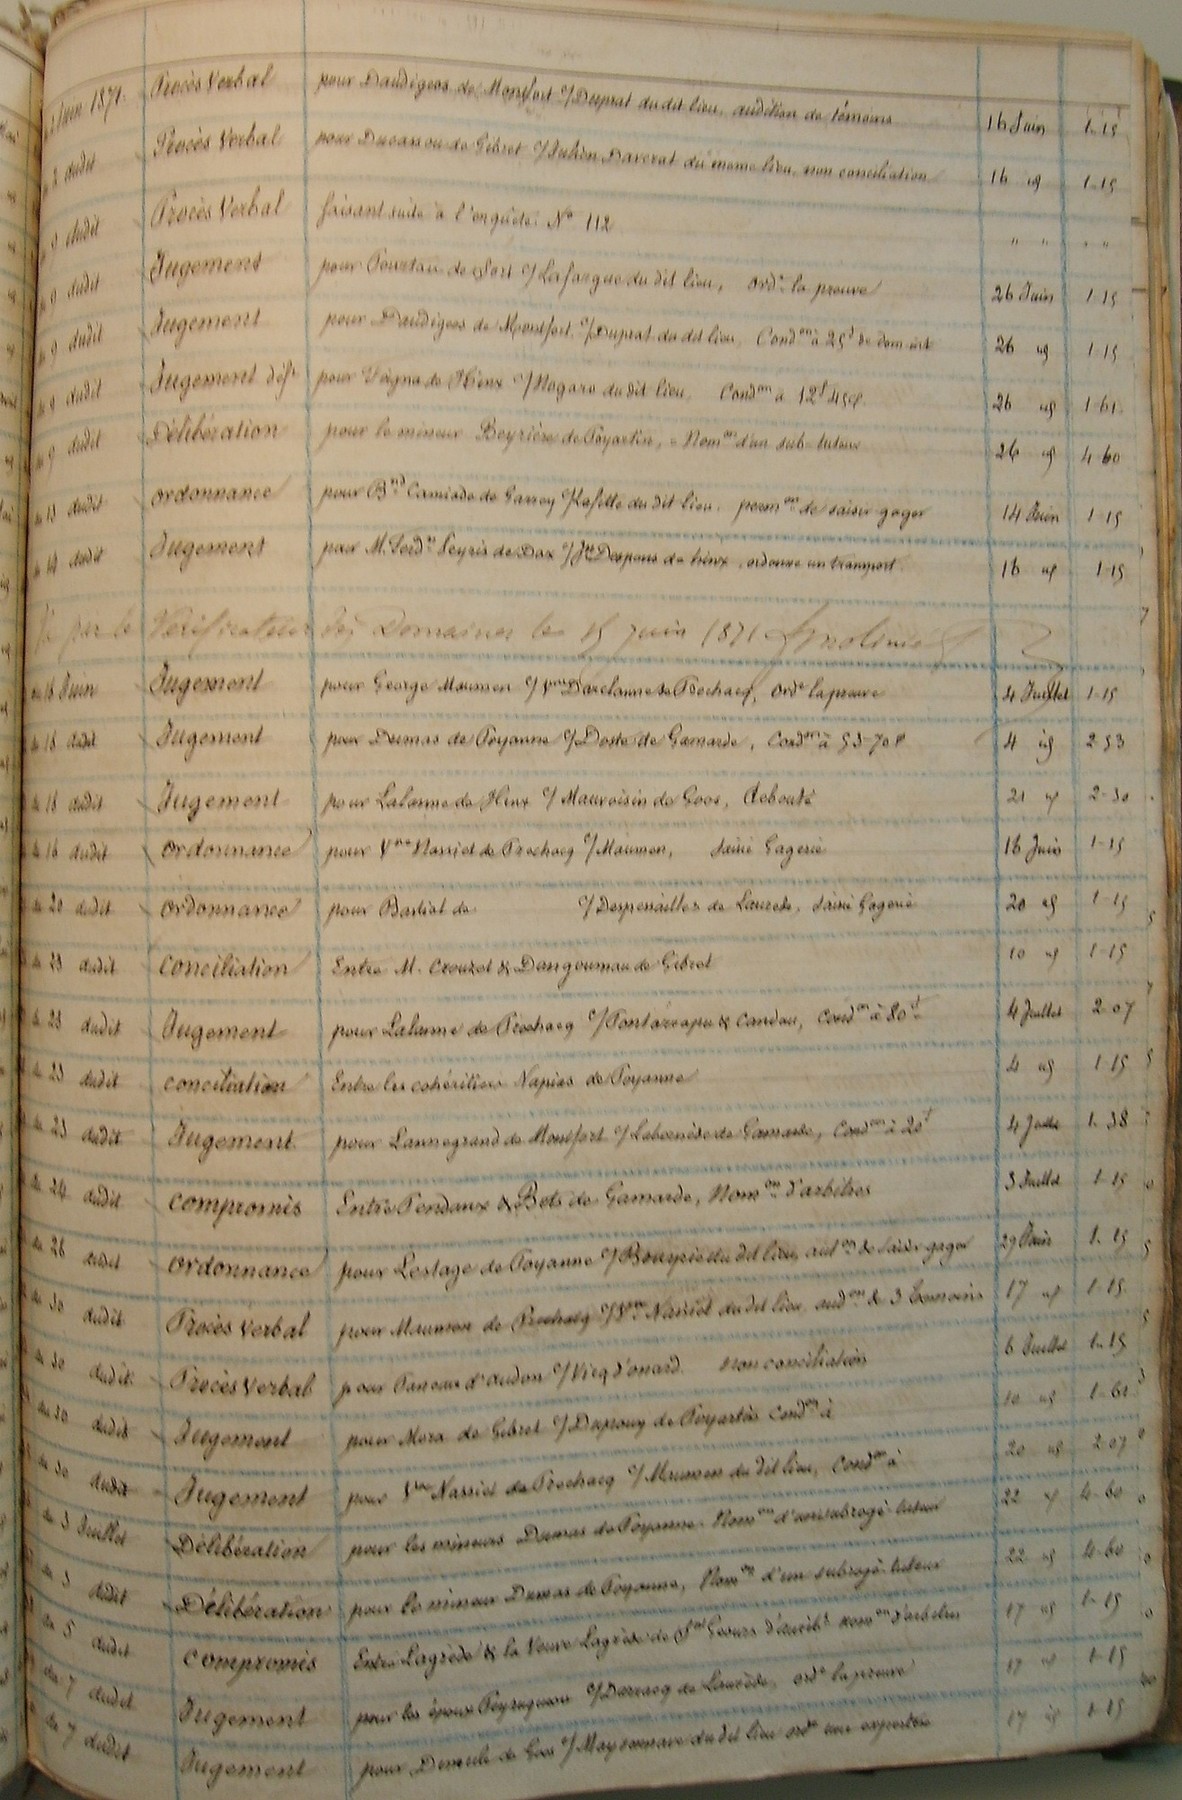 2 Juin 1871. Procès Verbal pour Daudigeos de Monfort c/ Duprat du dit lieu, audition de témoins 16 Juin 1-15
2 dudit Procès Verbal pour Ducassou de Gibret c/ Julien Daverat du même lieu, non conciliation 16 " 1-15
9 dudit Procès Verbal faisant suite à l'enquête N° 112 " " " "
9 dudit Jugement pour Pourtau de c/ Lafargue du dit lieu, ord.e la preuve 26 Juin 1-15
9 dudit Jugement pour Daudigeos de Montfort c/ Duprat du dit lieu, Cond.on à 25f de dom. int. 26 " 1-15
9 dudit Jugement déf.t pour de Hinx c/ Nogaro du dit lieu, Cond.on à 12f 45c. 26 " 1-61
9 dudit Délibération pour le mineur Beyrière de Poyartin, Nom.on d'un sub-tuteur 26 " 4-60
13 dudit ordonnance pour B.nd Camiade de Garrey c/ Lafitte du dit lieu. perm.on de saisir gager 14 Juin 1-15
14 dudit Jugement pour M. Ferd.d Leyris de Dax c/ Despons de hinx, ordonne un transport. 16 " 1-15
Vu par le Vérificateur des Domaines le 15 juin 1871
16 Juin Jugement pour George Maumen c/ V.ve Darclanne de Prechacq, ord.e la preuve 4 Juillet 1-15
dudit Jugement pour Dumas de Poyanne c/ Doste de Gamarde, Cond.on à 53-70c 4 " 2-53
dudit Jugement pour Lalanne de Hinx c/ Mauvoisin de Goos, Débouté 21 " 2-30
16 dudit ordonnance pour V.ve Nassiet de Prechacq c/ Maumen, saisie Gagerie 16 Juin 1-15
20 dudit ordonnance pour Bastiat de c/ Despenailles de Laurede, saisie Gagerie 20 " 1-15
23 dudit conciliation Entre M. Crouzet & Dangoumau de Gibret 10 " 1-15
23 dudit Jugement pour Lalanne de Préchacq c/ & Candau, Cond.on à 80f 4 Juillet 2-07
23 dudit conciliation Entre les cohéritiers Napias de Poyanne 4 " 1-15
23 dudit Jugement pour Lannegrand de Montfort c/ de Gamarde, Cond.on à 20f 4 Juillet 1-38
24 dudit compromis Entre Pendaux & Bets de Gamarde, Nom.on d'arbitres 3 Juillet 1-15
26 dudit ordonnance pour Lestage de Poyanne c/ du dit lieu, aut.on de saisir gager 29 Juin 1-15
30 dudit Procès Verbal pour Maumen de Prechacq c/ V.ve Nassiet du dit lieu. aud.on de 3 témoins 17 " 1-15
30 dudit Procès Verbal pour d'audon c/ Vicq d'onard. Non conciliation 6 Juillet 1-15
30 dudit Jugement pour Mora de Gibret c/ Dupouy de Poyartin Cond.on à 10 " 1-61
30 dudit Jugement pour V.ve Nassiet de Prechacq c/ Maumen du dit lieu, Cond.on à 20 " 2-07
3 Juillet Délibération pour les mineurs Dumas de Poyanne. Nom.on d'un subrogé tuteur 22 " 4-60
3 dudit Délibération pour le mineur Dumas de Poyanne, Nom.on d'un subrogé-tuteur 22 " 4-60
5 dudit compromis Entre Lagrède & la Veuve Lagrède de S.nt Geours d'auribt nom.on d'arbitres 17 " 1-15
7 dudit Jugement pour les époux c/ Darracq de Laurède, ord.e la preuve 17 " 1-15
7 dudit Jugement pour de Goos c/ Maysonnave du dit lieu ord.e une expertise 17 " 1-15